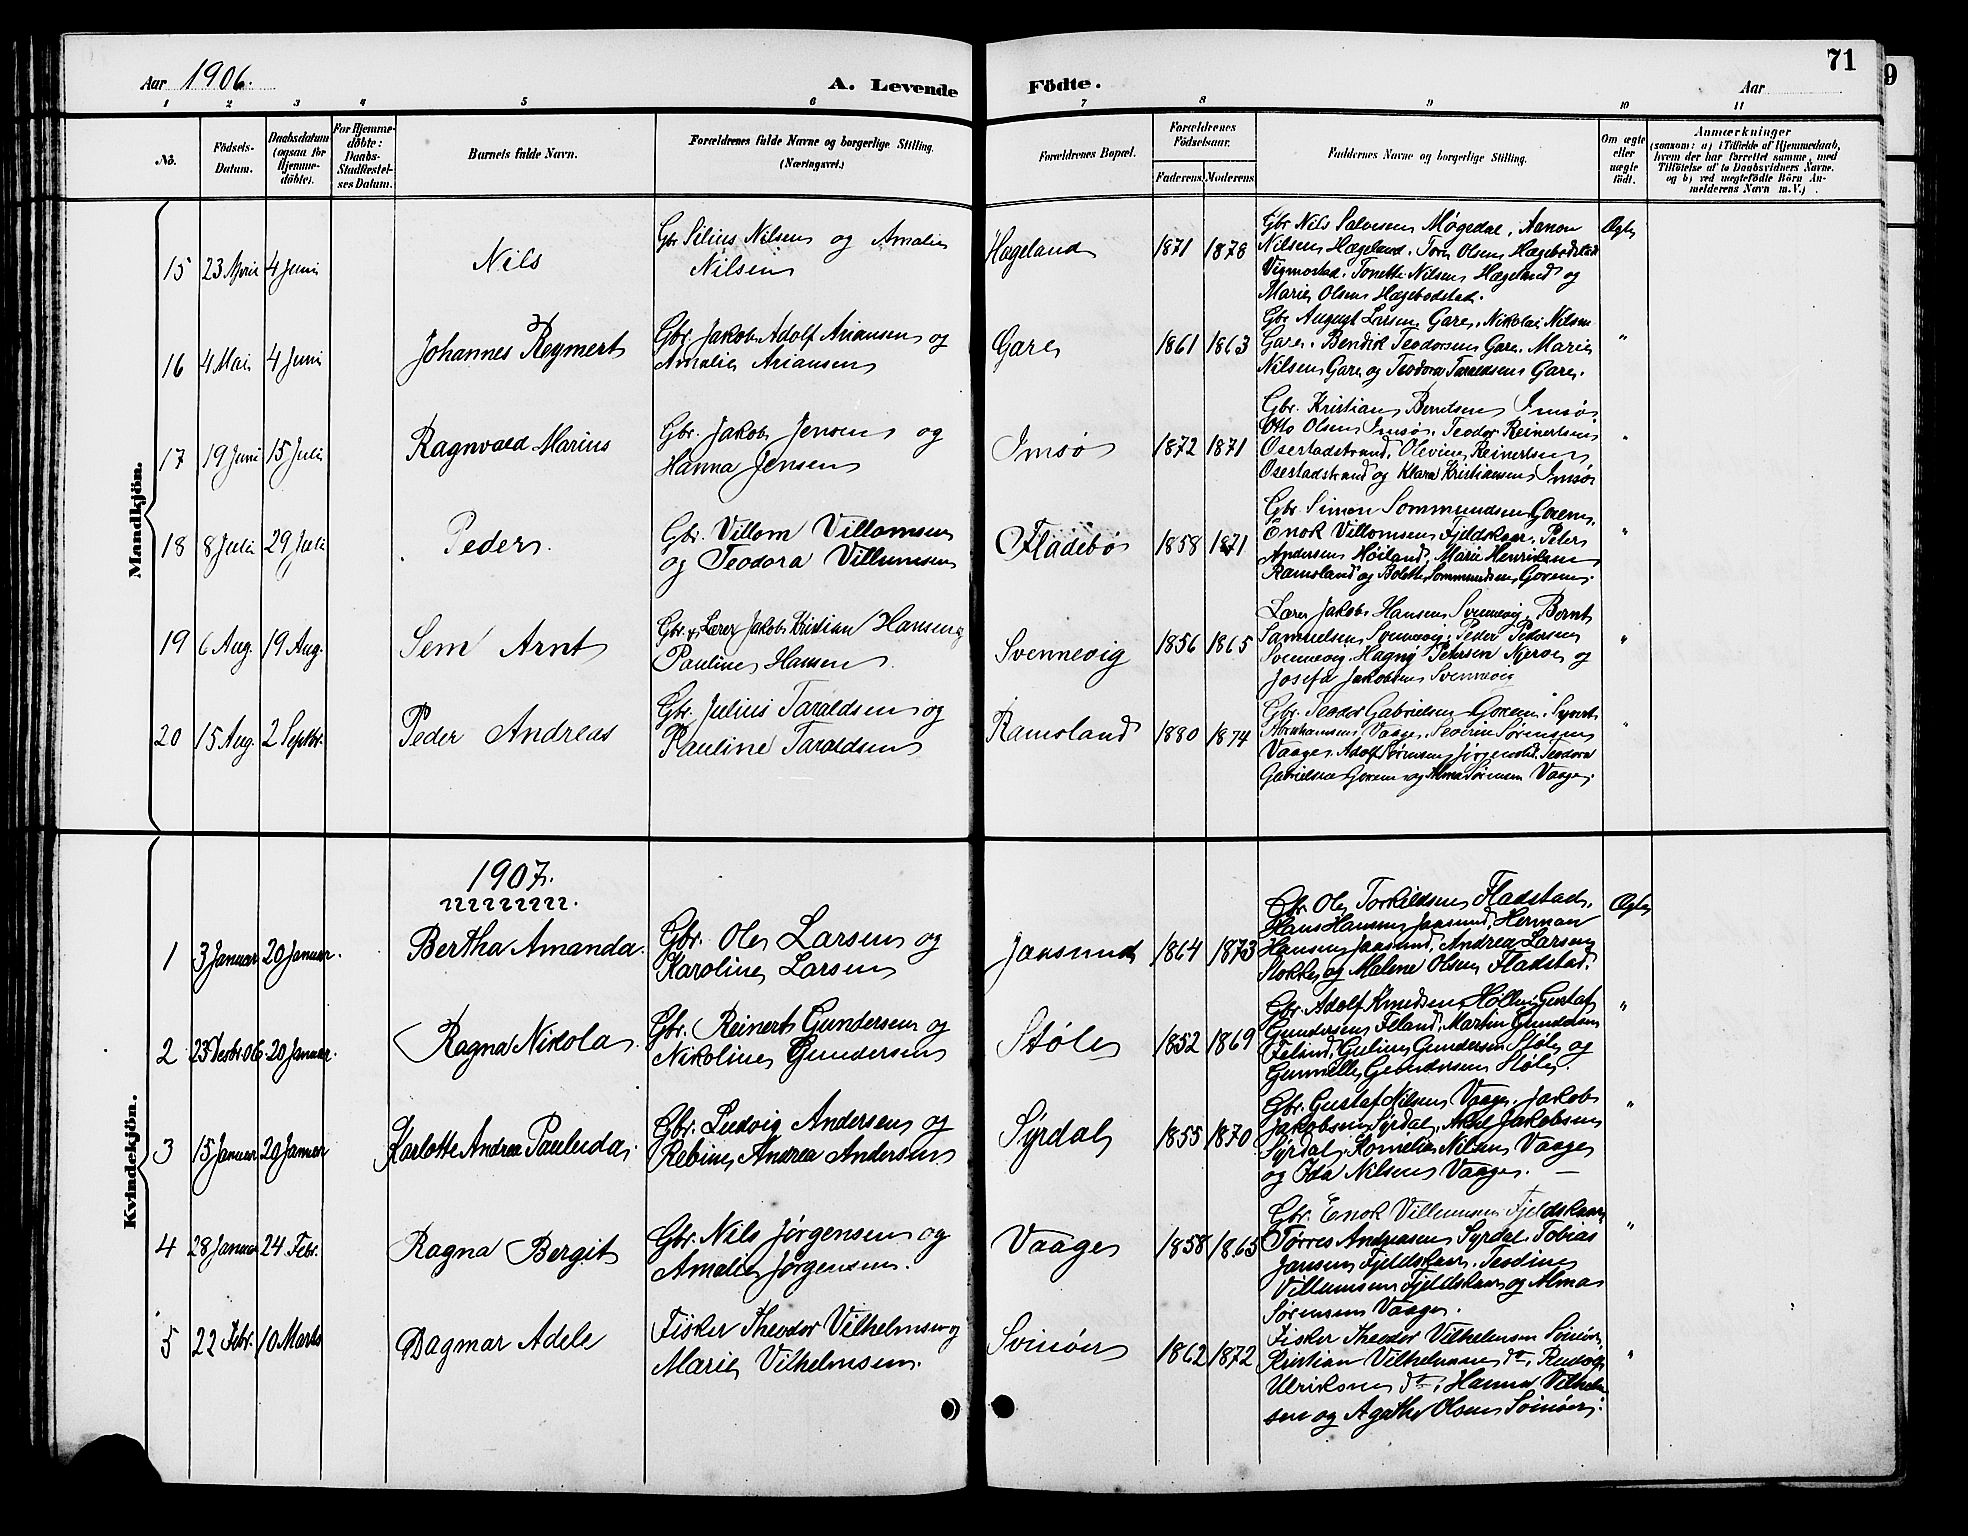 71
Aar 1906.
A. Levende Födte.
Aar
1 2 3 4 5 6 7 8 9 10 11
No.
Födsels-Datum.
Daabsdatum (ogsaa for Hjemmedöbte).
For Hjemmedöbte: Daabs-Stadfæstelses Datum.
Barnets fulde Navn.
Forældrenes fulde Navne og borgerlige Stilling. (Næringsvei.)
Forældrenes Bopæl.
Forældrenes Födselsaar.
Faderens. Moderens.
Faddernes Navne og borgerlige Stilling.
Om ægte eller uægte födt.
Anmærkninger
(saasom: a) i Tilfælde af Hjemmedaab, hvem der har forrettet samme, med Tilföielse af to Daabsvidners Navne. og b) ved uægtefödte Börn Anmelderens Navn m. V.)
Mandkjön.
15 23 April 4 Juni
Nils
Gbr Silius Nilsen og Amalie
Nilsen
Hægeland
1871 1878
Gbr Nils Salvesen Møgedal, Aanon
Nilsen Hægeland, Tore Olsen Hægebodstad
Vigmostad. Tonette Nilsen Hægeland og
Marie Olsen Hægebodstad.
Ægte
16 4 Mai 4 Juni
Johannes Reymert
Gbr. Jakob Adolf Ariansen og
Amalie Ariansen
Gare
1861 1863
Gbr August Larsen Gare, Nikolai Nilsen
Gare. Bendik Teodorsen Gare. Marie
Nilsen Gare og Teodora Taraldsen Gare.
"
17 19 Juni 15 Juli
Ragnvald Marius
Gbr. Jakob Jensen og
Hanna Jensen
Imsø
1872 1871
Gbr. Kristian Berntsen Imsø
Otto Olsen Imsø. Teodor Reinertsen
Osestadstrand, Olevine Reinertsen
Osestadstrand og Klara Kristiansen Imsø
"
18 8 Juli 29 Juli
Peder
Gbr. Villom Villomsen
og Teodora Villumsen
Fladebø
1858 1871
Gbr Simon Sommundsen Goren.
Enok Villomsen Fjeldskaar. Peter
Andersen Høiland, Marie Henriksen
Ramsland og Bolette Sommundsen Goren.
"
19 6 Aug. 19 Aug.
Sem Arnt
Gbr. & Lærer Jakob Kristian Hansen og
Pauline Hansen.
Svennevig
1856 1865
Lærer Jakob Hansen Svennevig, Bernt
Samuelsen Svennevig. Peder Pedersen
Svennevig. Hagny Petersen Njerve og
Josefa Jakobsen Svennevig
"
20 15 Aug. 2 Septbr.
Peder Andreas
Gbr. Julius Taraldsen og
Pauline Taraldsen
Ramsland
1880 1874
Gbr. Teodor Gabrielsen Goren. Syvert
Abrahamsen Vaage, Severin Sørensen
Vaage. Adolf Sørensen Jørgenstad. Teodora
Gabrielsen Goren og Alma Sørensen Vaage.
"
Kvindekjön.
1907.
1 3 Januar 20 Januar.
Bertha Amanda.
Gbr. Ole Larsen og
Karoline Larsen
Jaasund
1864 1873
Gbr. Ole Torkildsen Fladstad.
Hans Hansen Jaasund, Herman
Hansen Jaasund. Andrea Larsen
Stokke og Malene Olsen Fladstad.
Ægte
2 23 Desbr. 06. 20 Januar.
Ragna Nikola.
Gbr. Reinert Gundersen og
Nikoline Gundersen
Støle
1852 1869
Gbr. Adolf Knudsen Hølle. Gustaf
Gundersen Feland, Martin Gundersen
Feland, Guline Gundersen Støle og
Gunnelle Gundersen Støle.
"
3 15 Januar 20 Januar
Karlotte Andrea Paulinda.
Gbr. Ludvig Andersen og
Rebine Andrea Andersen
Syrdal
1855 1870
Gbr. Gustaf Nilsen Vaage. Jakob
Jakobsen Syrdal. Aksel Jakobsen
Syrdal, Kornelia Nilsen Vaage
og Ida Nilsen Vaage.
"
4 28 Januar 24 Febr.
Ragna Bergit
Gbr. Nils Jørgensen og
Amalie Jørgensen.
Vaage
1858 1865
Gbr. Enok Villumsen Fjeldskaar.
Tørres Andreasen Syrdal Tobias
Jansen Fjeldskaar. Teodine
Villumsen Fjeldskaar og Alma
Sørensen Vaage.
"
5 22 Febr. 10 Marts
Dagmar Adele
Fisker Theodor Vilhelmsen og
Marie Vilhelmsen.
Svinöer
1862 1872
Fisker Theodor Vilhelmsen Svinöer,
Kristian Vilhelmsen do, Rudolf
Ulriksen do, Hanna Vilhelm
sen og Agathe Olsen Svinöer.
"